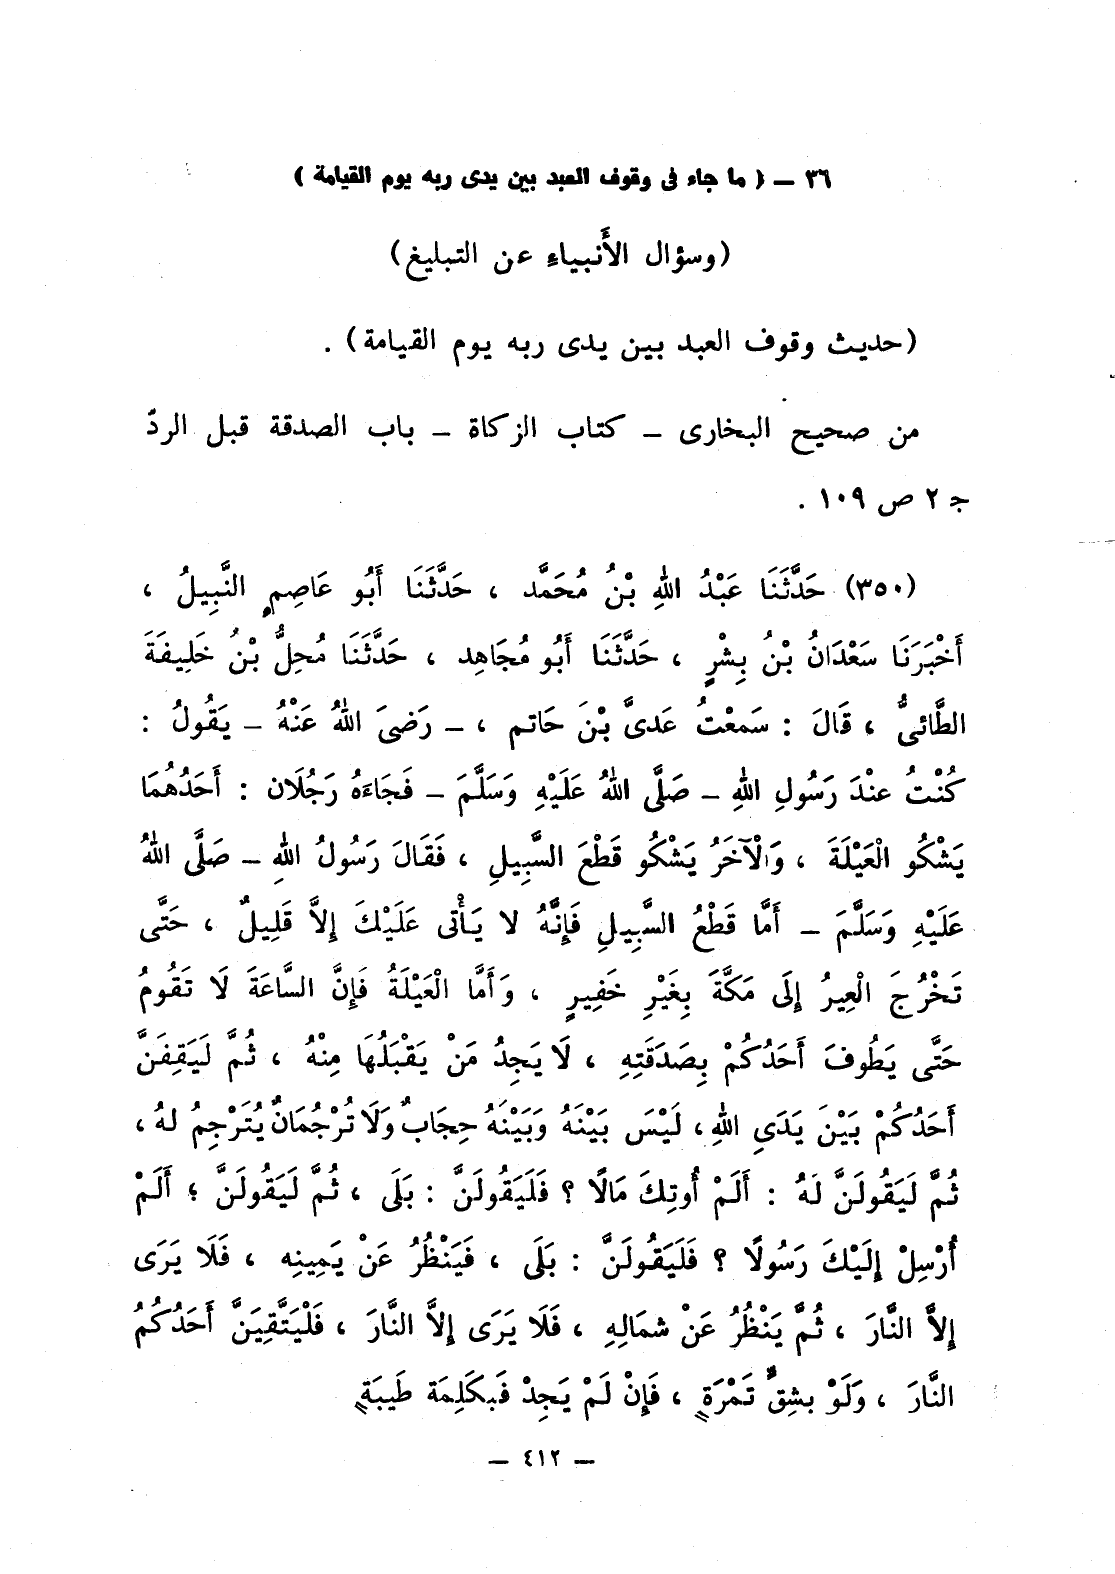 ٣٦ – ( ما جاء فى وقوف العبد بين يدى ربه يوم القيامة )
(وسؤال الأَنبياءِ عن التبليغ)
(حديث وقوف العبد بين يدى ربه يوم القيامة) .
من صحيح البخارى – كتاب الزكاة – باب الصدقة قبل الردّ
جـ ٢ ص ١٠٩ .
(٣٥٠) حَدَّثَنَا عَبْدُ اللهِ بْنُ مُحَمَّد ، حَدَّثَنَا أَبُو عَاصِمٍ النَّبِيلُ ،
أَخْبَرَنَا سَعْدَانُ بْنُ بِشْرٍ ، حَدَّثَنَا أَبُو مُجَاهِد ، حَدَّثَنَا مُحِلُّ بْنُ خَلِيفَةَ
الطَّائىُّ ، قَالَ : سَمعْتُ عَدىَّ بْنَ حَاتم ، – رَضىَ اللهُ عَنْهُ – يَقُولُ :
كُنْتُ عنْدَ رَسُولِ اللهِ – صَلَّى اللهُ عَلَيْهِ وَسَلَّمَ – فَجَاءَهُ رَجُلَان : أَحَدُهُمَا
يَشْكُو الْعَيْلَةَ ، وَالْآخَرُ يَشْكُو قَطْعَ السَّبِيلِ ، فَقَالَ رَسُولُ اللهِ – صَلَّى اللهُ
عَلَيْهِ وَسَلَّمَ – أَمَّا قَطْعُ السَّبِيلِ فَإِنَّهُ لا يَأْتى عَلَيْكَ إِلاَّ قَلِيلٌ ، حَتَّى
تَخْرُجَ الْعِيرُ إِلَى مَكَّةَ بِغَيْرِ خَفِيرٍ ، وَأَمَّا الْعَيْلَةُ فَإِنَّ السَّاعَةَ لَا تَقُومُ
حَتَّى يَطُوفَ أَحَدُكُمْ بِصَدَقَتِهِ ، لَا يَجِدُ مَنْ يَقْبَلُهَا مِنْهُ ، ثُمَّ لَيَقِفَنَّ
أَحَدُكُمْ بَيْنَ يَدَىِ اللهِ، لَيْسَ بَيْنَهُ وَبَيْنَهُ حِجَابٌ وَلَا تُرْجُمَانٌ يُتَرْجِمُ لهُ ،
ثُمَّ لَيَقُولَنَّ لَهُ : أَلَمْ أُوتِكَ مَالًا ؟ فَلَيَقُولَنَّ : بَلَى ، ثُمَّ لَيَقُولَنَّ ؛ أَلَمْ
أُرْسِلْ إِلَيْكَ رَسُولًا ؟ فَلَيَقُولَنَّ : بَلَى ، فَيَنْظُرُ عَنْ يَمِينِه ، فَلَا يَرَى
إِلاَّ النَّارَ ، ثُمَّ يَنْظُرُ عَنْ شمَالِهِ ، فَلَا يَرَى إِلاَّ النَّارَ ، فَلْيَتَّقِيَنَّ أَحَدُكُمُ
النَّارَ ، وَلَوْ بشِقِّ تَمْرَةٍ ، فَإِنْ لَمْ يَجِدْ فَبكَلِمَة طَيبَةٍ
– ٤١٢ –